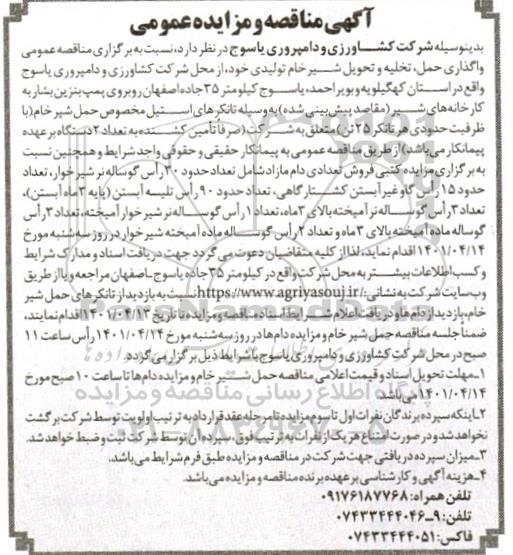 آگهی مناقصه و مزایده عمومی
بدینوسیله شرکت کشاورزی و دامپروری یاسوج در نظر دارد، نسبت به برگزاری مناقصه عمومی
واگذاری حمل، تخلیه و تحویل شیر خام تولیدی خود، از محل شرکت کشاورزی و دامپروری یاسوج
واقع در استان کهگیلویه و بویراحمد، یاسوج کیلومتر ۳۵ جاده اصفهان روبروی پمپ بنزین بشار به
کارخانه‌های شیر (مقاصد پیش‌بینی شده) به وسیله تانکرهای استیل مخصوص حمل شیر خام (با
ظرفیت حدودی هر تانکر ۲۵ تن) متعلق به شرکت (صرفاً تأمین کشنده به تعداد ۲ دستگاه بر عهده
پیمانکار می‌باشد) از طریق مناقصه عمومی به پیمانکار حقیقی و حقوقی واجد شرایط و همچنین نسبت
به برگزاری مزایده کتبی فروش تعدادی دام مازاد شامل تعداد حدود ۴۰ رأس گوساله نر شیرخوار، تعداد
حدود ۱۵ رأس گاو غیر آبستن کشتارگاهی، تعداد حدود ۹۰ رأس تلیسه آبستن (پایه ۳ ماه آبستن)،
تعداد ۳ رأس گوساله نر آمیخته بالای ۳ ماه، تعداد ۱ رأس گوساله نر شیرخوار آمیخته، تعداد ۳ رأس
گوساله ماده آمیخته بالای ۳ ماه و تعداد ۲ رأس گوساله ماده آمیخته شیرخوار در روز سه شنبه مورخ
۱۴۰۱/۰۴/۱۴ اقدام نماید، لذا از کلیه متقاضیان دعوت می‌گردد جهت دریافت اسناد و مدارک شرایط
و کسب اطلاعات بیشتر به محل شرکت واقع در کیلومتر ۳۵ جاده یاسوج ـ اصفهان مراجعه و یا از طریق
وب‌سایت شرکت به نشانی: https://www.agriyasouj.ir نسبت به بازدید از تانکرهای حمل شیر
خام، بازدید از دام‌ها و دریافت اعلام شرایط اسناد مناقصه و مزایده تا تاریخ ۱۴۰۱/۰۴/۱۳ اقدام نمایند،
ضمناً جلسه مناقصه حمل شیر خام و مزایده دام‌ها در روز سه شنبه مورخ ۱۴۰۱/۰۴/۱۴ رأس ساعت ۱۱
صبح در محل شرکت کشاورزی و دامپروری یاسوج با شرایط ذیل برگزار می‌گردد.
۱ـ مهلت تحویل اسناد و قیمت اعلامی مناقصه حمل شیر خام و مزایده دام‌ها تا ساعت ۱۰ صبح مورخ
۱۴۰۱/۰۴/۱۴ می‌باشد.
۲ـ اینکه سپرده برندگان نفرات اول تا سوم مزایده تا مرحله عقد قرارداد به ترتیب اولویت توسط شرکت برگشت
نخواهد شد و در صورت امتناع هر یک از نفرات به ترتیب فوق، سپرده آن توسط شرکت ثبت و ضبط خواهد شد.
۳ـ میزان سپرده دریافتی جهت شرکت در مناقصه و مزایده طبق فرم شرایط می‌باشد.
۴ـ هزینه آگهی و کارشناسی بر عهده برنده مناقصه و مزایده می‌باشد.
تلفن همراه: ۰۹۱۷۶۱۸۷۷۶۸
تلفن: ۹ـ۰۷۴۳۳۴۴۴۰۴۶
فاکس: ۰۷۴۳۳۴۴۴۰۵۱